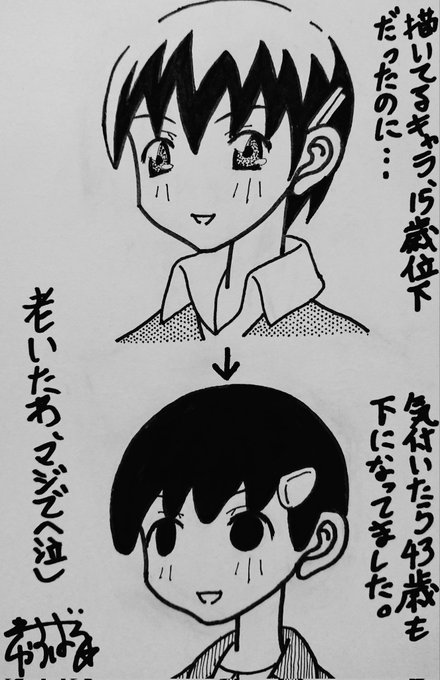 描いてるキャラ、15歳位下
だったのに…
気付いたら43歳も
下になってました。
老いたわ、マジで(泣)